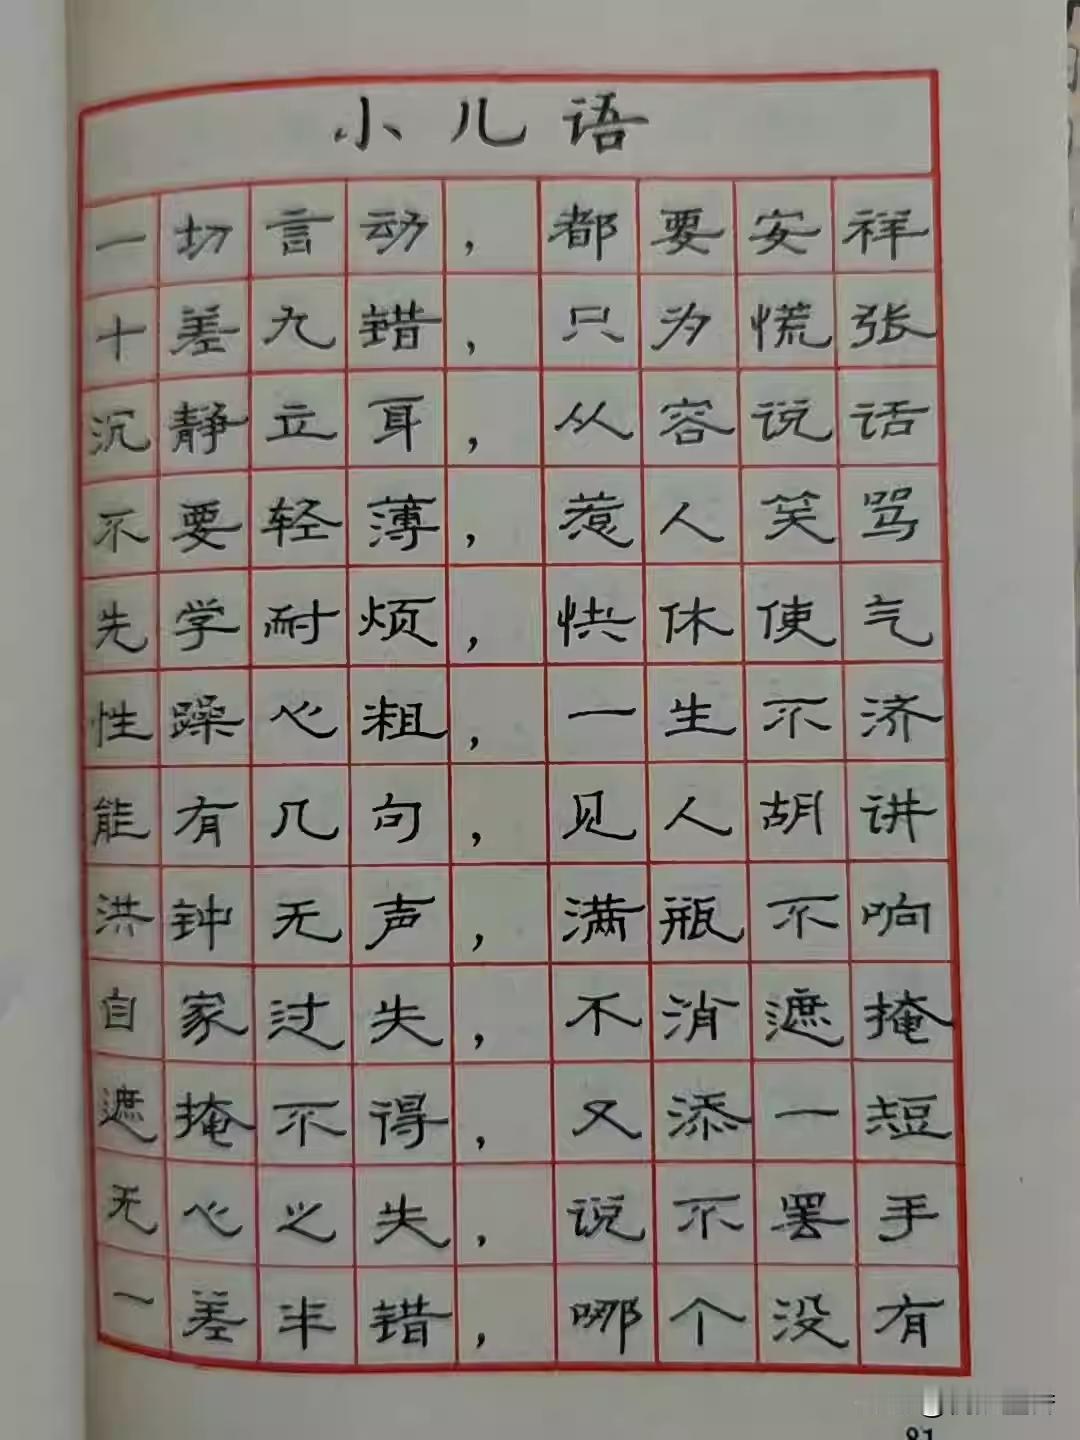 小儿语
一切言动，都要安祥
十差九错，只为慌张
沉静立耳，从容说话
不要轻薄，惹人笑骂
先学耐烦，快休使气
性躁心粗，一生不济
能有几句，见人胡讲
洪钟无声，满瓶不响
自家过失，不消遮掩
遮掩不得，又添一短
无心之失，说不罢手
一差半错，哪个没有
81